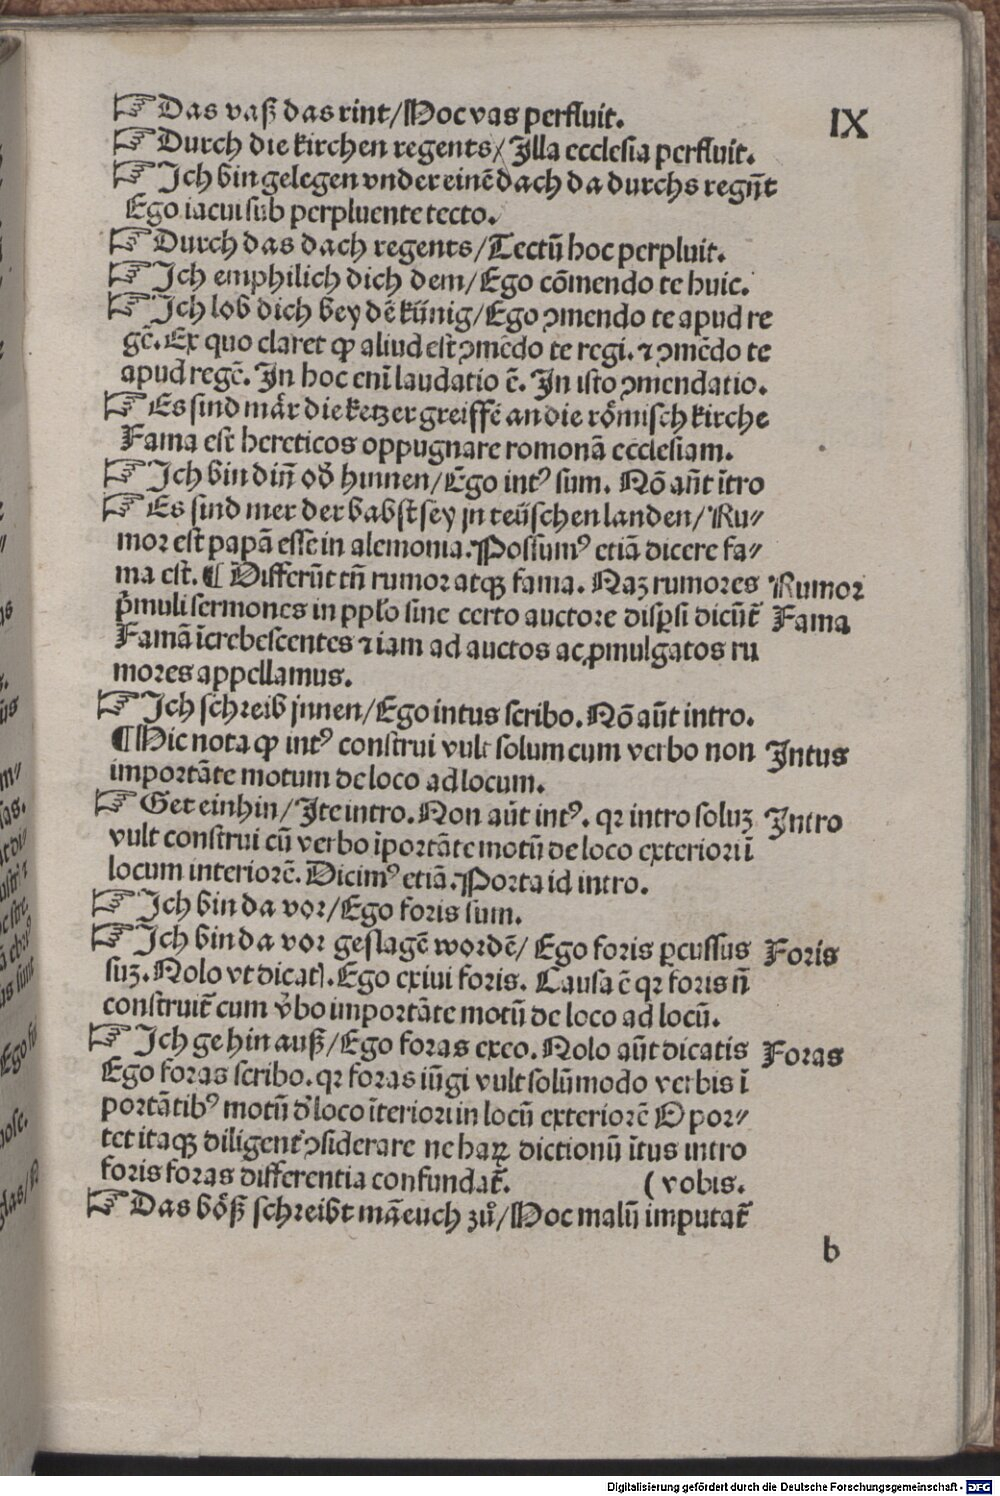 ☞ Das vaß das rint/Hoc vas perfluit. IX
☞ Durch die kirchen regents/Illa ecclesia perfluit.
☞ Ich bin gelegen vnder einē dach da durchs regn̄t
Ego iacui sub perpluente tecto.
☞ Durch das dach regents/Tectū hoc perpluit.
☞ Ich emphilich dich dem/Ego cōmendo te huic.
☞ Ich lob dich bey dē künig/Ego ↄmendo te apud re
gē. Ex quo claret ꝙ aliud est ↄmēdo te regi. ⁊ ↄmēdo te
apud regē. In hoc eni̅ laudatio ē. In isto ↄmendatio.
☞ Es sind mår die ketzer greiffē an die rômisch kirche
Fama est hereticos oppugnare romonā ecclesiam.
☞ Ich bin diñ od̄ hinnen/Ego intꝰ sum. Nō aūt ītro
☞ Es sind mer der babst sey jn teüschen landen/Ru⸗
mor est papā esse in alemonia. Possumꝰ etiā dicere fa⸗
ma est. ¶ Differūt tn̄ rumor atqꝫ fama. Naꝫ rumores Rumor
p̄muli sermones in pplo sine certo auctore dispsi dicūt̄ Fama
Famā īcrebescentes ⁊ iam ad auctos ac ꝓmulgatos ru
mores appellamus.
☞ Ich schreib jnnen/Ego intus scribo. Nō aūt intro.
¶ Hic nota ꝙ intꝰ construi vult solum cum verbo non Intus
importāte motum de loco ad locum.
☞ Get einhin/Ite intro. Non aūt intꝰ. qꝛ intro soluꝫ Intro
vult construi cū verbo īportāte motū de loco exteriori ī
locum interiorē. Dicimꝰ etiā. Porta id intro.
☞ Ich bin da vor/Ego foris sum.
☞ Ich bin da vor geslagē wordē/ Ego foris ꝑcussus Foris
suꝫ. Nolo vt dicatꝭ. Ego exiui foris. Causa ē qꝛ foris n̄
construit̄ cum v̄bo importāte motū de loco ad locū.
☞ Ich ge hin auß/Ego foras exeo. Nolo aūt dicatis Foras
Ego foras scribo. qꝛ foras iūgi vult solūmodo verbis ī
portātibꝰ motū d̄ loco īteriori in locū exteriorē Opor⸗
tet itaqꝫ diligent̄ ↄsiderare ne haꝝ dictionū ītus intro
foris foras differentia confundat̄. ( vobis.
☞ Das bôß schreibt mā euch zů/Hoc malū imputat̄
b
Digitalisierung gefördert durch die Deutsche Forschungsgemeinschaft - DFG